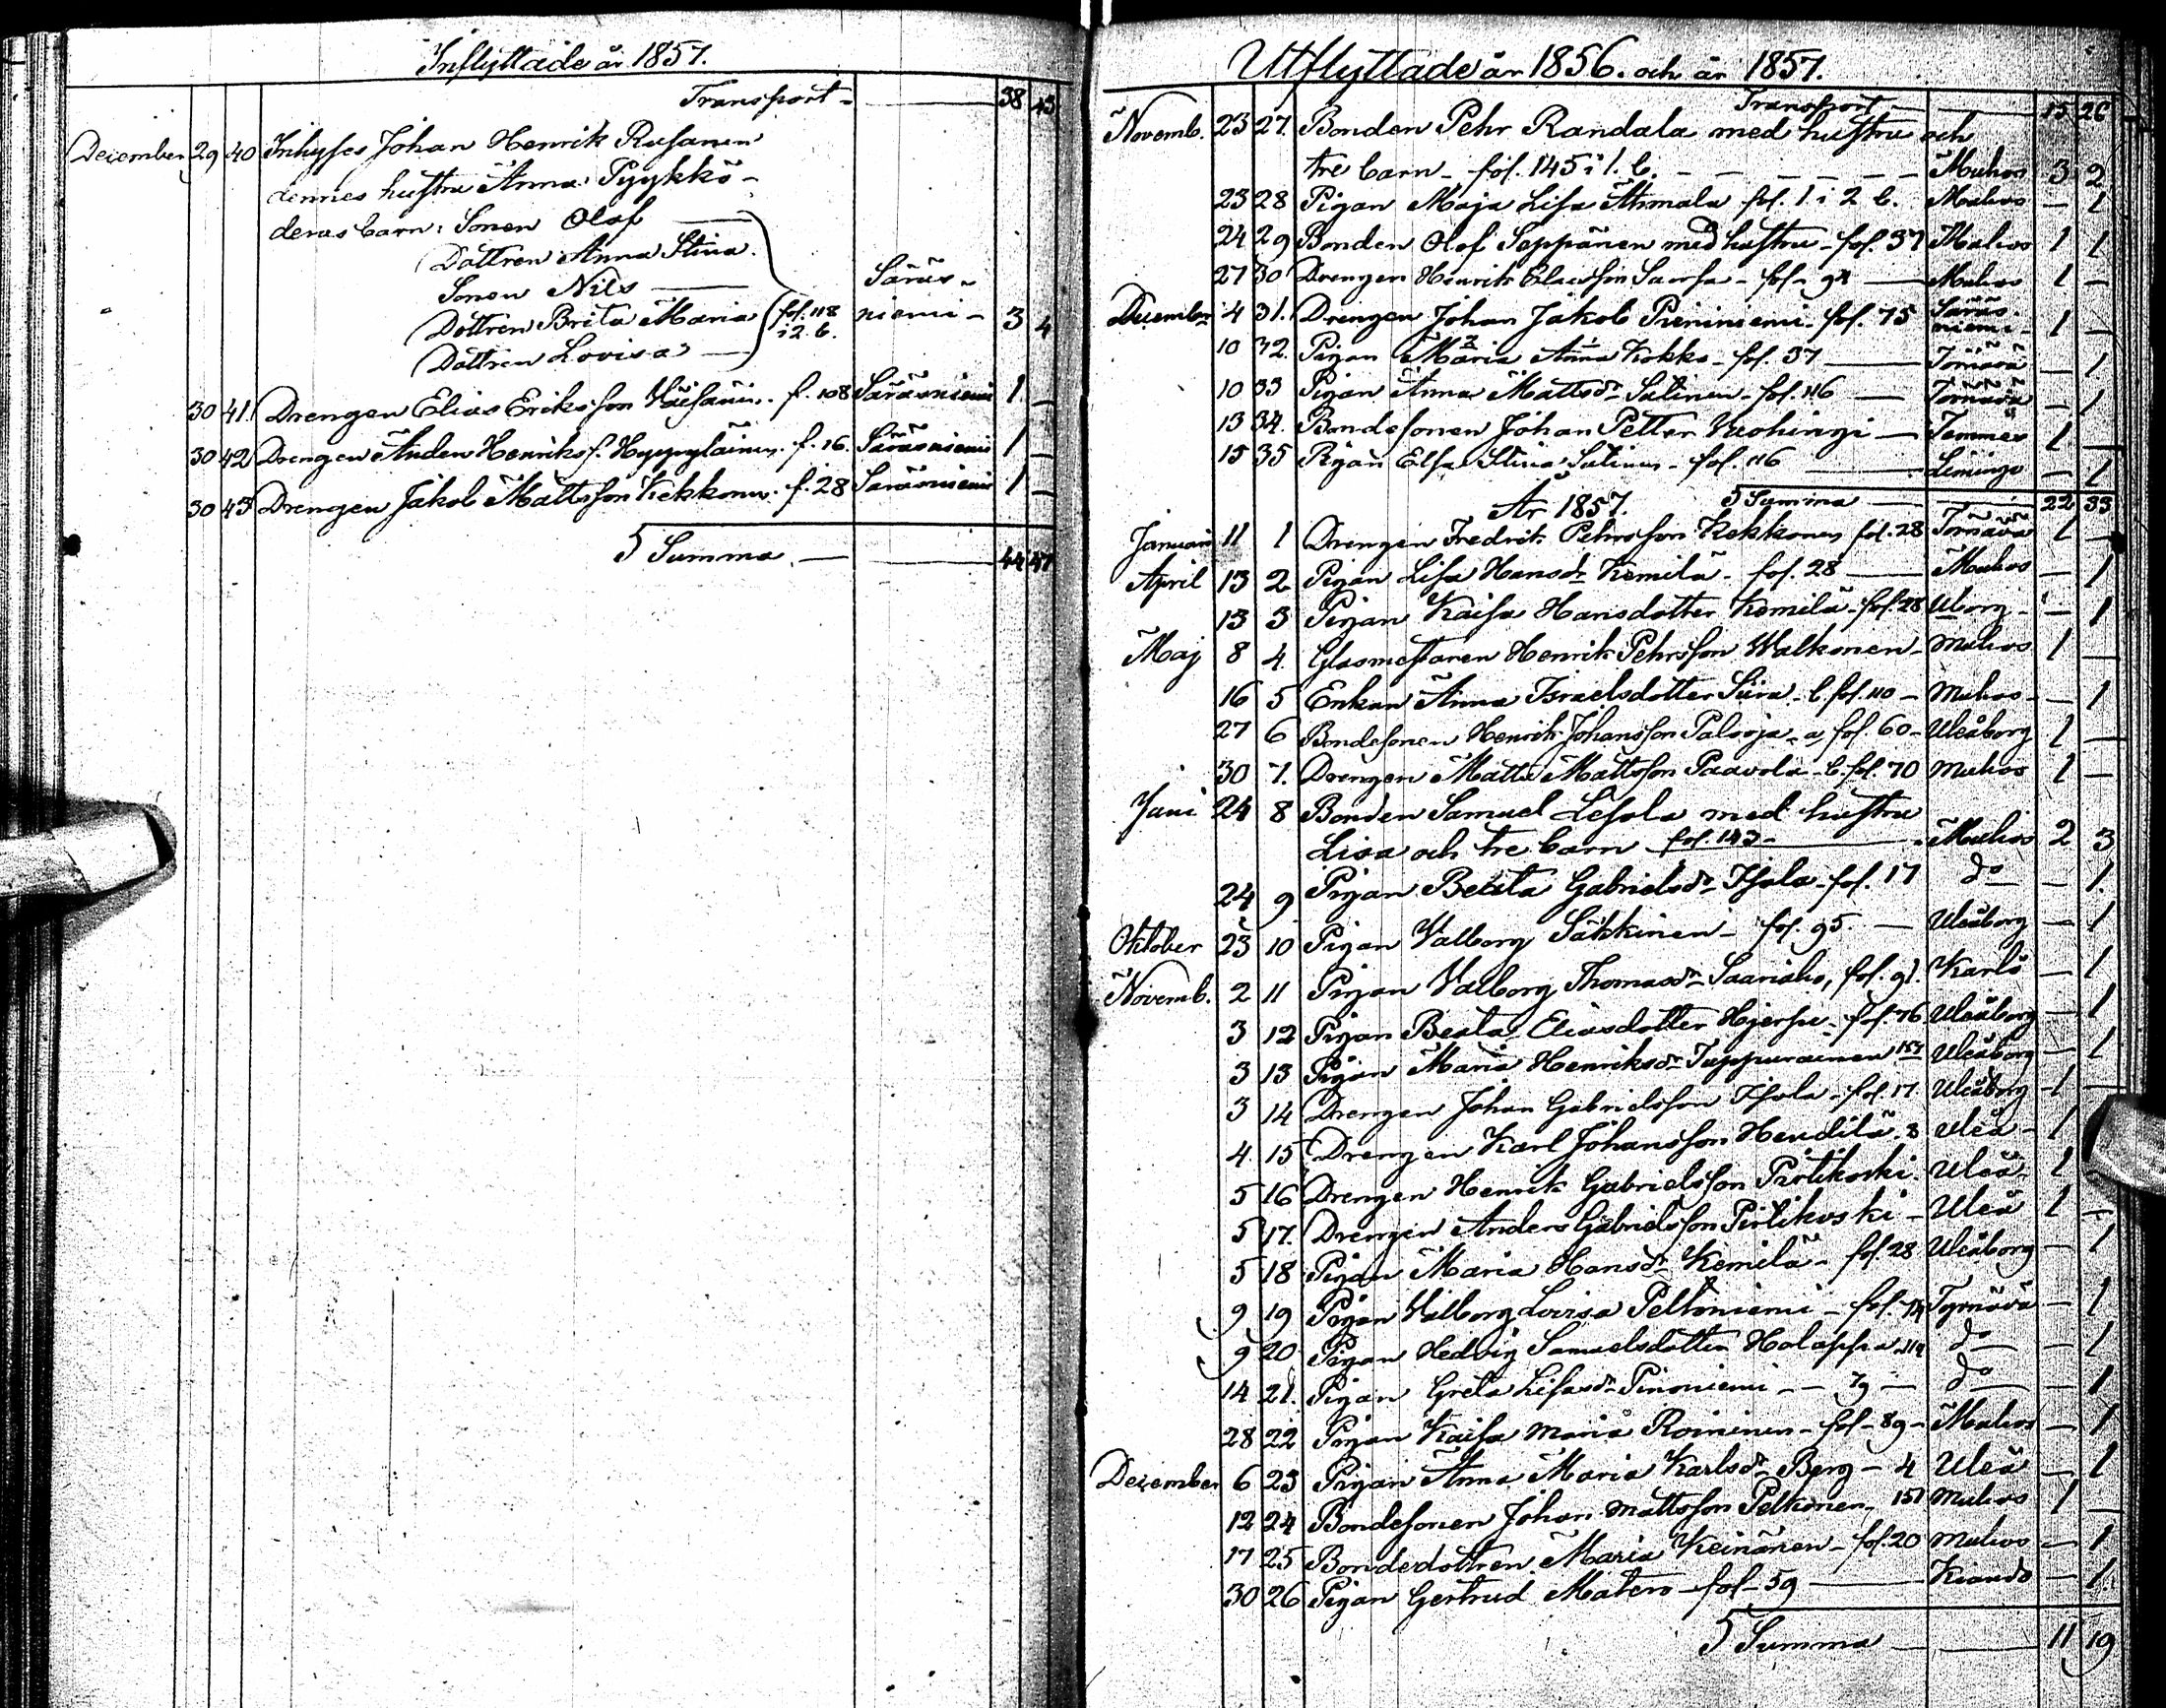 Inflyttade år 1857.
Transport - 38 43
December 29 40 Inhyses Johan Henrik Rusanen
dennes hustru Anna Pyykkö -
deras barn: Sonen Olof
Dottren Anna Stina
Sonen Nils
Säräs-
Dottren Brita Maria fol. 118 i 2 b. niemi - 3 4
Dottren Lovisa
30 41. Drengen Elias Eriksson Väisänen. f. 108 Säräsniemi 1 -
30 42 Drengen Anders Henriks f. Hyyryläinen. f. 16. Säräsniemi 1 -
30 43 Drengen Jakob Mattsson Kekkonen. f. 28 Säräsniemi 1 -
Summa - 44 47
Utflyttade år 1856. och år 1857.
Transport - 15 26
Novemb. 23 27. Bonden Pehr Randala med hustru och
tre barn - fol. 145 i 1. b. - Muhos 3 2
23 28 Pigan Maja Lisa Ahmala fol. 1 i 2 b. Muhos - 1
24 29 Bonden Olof Seppänen med hustru - fol. 37 Muhos 1 1
27 30 Drengen Henrik - fol. 94 - Muhos 1 -
December 4 31. Drengen Johan Jakob Pieniniemi - fol. 75 Säräsniemi - 1 -
10 32. Pigan Maria Anna Kokko - fol. 37 - Törnävä - 1
10 33 Pigan Anna Mattsdr Sutinen - fol. 116 - Törnävä - 1
13 34. Bondesonen Johan Petter Vuohingi - Temmes 1 -
15 35 Pigan Elsa Stina Sutinen - fol. 116 - Limingo - 1
År 1857. Summa - 22 33
Januari 11 1 Drengen Fredrik Pehrsson Kekkonen fol. 28 Törnävä 1 -
April 13 2 Pigan Lisa Hansdr Kemilä - fol. 28 - Muhos - 1
13 3 Pigan Kaisa Hansdotter Kemilä - fol. 28 Uborg - - 1
Maj 8 4. Glasmästaren Henrik Pehrsson Walkonen - Muhos 1 -
16 5 Enkan Anna Israelsdotter Sura - b. fol. 110 - Muhos - 1
27 6 Bondesonen Henrik Johansson Palooja - a, fol. 60 - Uleåborg 1 -
30 7. Drengen Matts Mattsson Paavola - b. fol. 70 Muhos 1 -
Juni 24 8 Bonden Samuel Lesola med hustru
Lisa och tre barn - fol. 143 - Muhos 2 3
24 9 Pigan Beata Gabrielsdr Isola - fol. 17 do - 1.
Oktober 23 10 Pigan Valborg Säkkinen - fol. 95. - Uleåborg - 1
Novemb. 2 11 Pigan Valborg Thomasdr Saariaho, fol. 91. Karlö - 1
3 12 Pigan Beata Eliasdotter Hjerpe - fol. 76 Uleåborg - 1
3 13 Pigan Maria Henriksdr Tuppurainen 157 Uleåborg - 1
3 14 Drengen Johan Gabrielsson Isola - fol. 17 Uleåborg 1 -
4. 15 Drengen Karl Johansson Heudilä. 8 Uleå - 1
5 16 Drengen Henrik Gabrielsson Pirtikoski. Uleå - 1 -
5 17. Drengen Anders Gabrielsson Pirtikoski - Uleå 1 -
5 18 Pigan Maria Hansdr Kemilä - fol. 28 Uleåborg - 1
9 19 Pigan Walborg Lovisa Peltoniemi - fol. 74 Tyrnävä - 1
9 20 Pigan Hedvig Samuelsdotter Holappa. 114 do - 1
14 21. Pigan Greta Lisa dr Pinoniemi - - 79 - do - 1
28 22 Pigan Kaisa Maria Roininen - fol - 89 - Muhos - 1
December 6 23 Pigan Anna Maria Karlsdr Berg - 4 Uleå - 1
12 24 Bondesonen Johan Mattsson Pelkonen - 157 Muhos 1 -
17 25 Bondedottren Maria Keinänen - fol. 20 Muhos - 1
30 26 Pigan Gertrud Matero - fol - 59 - Kiando - 1.
Summa - 11 19